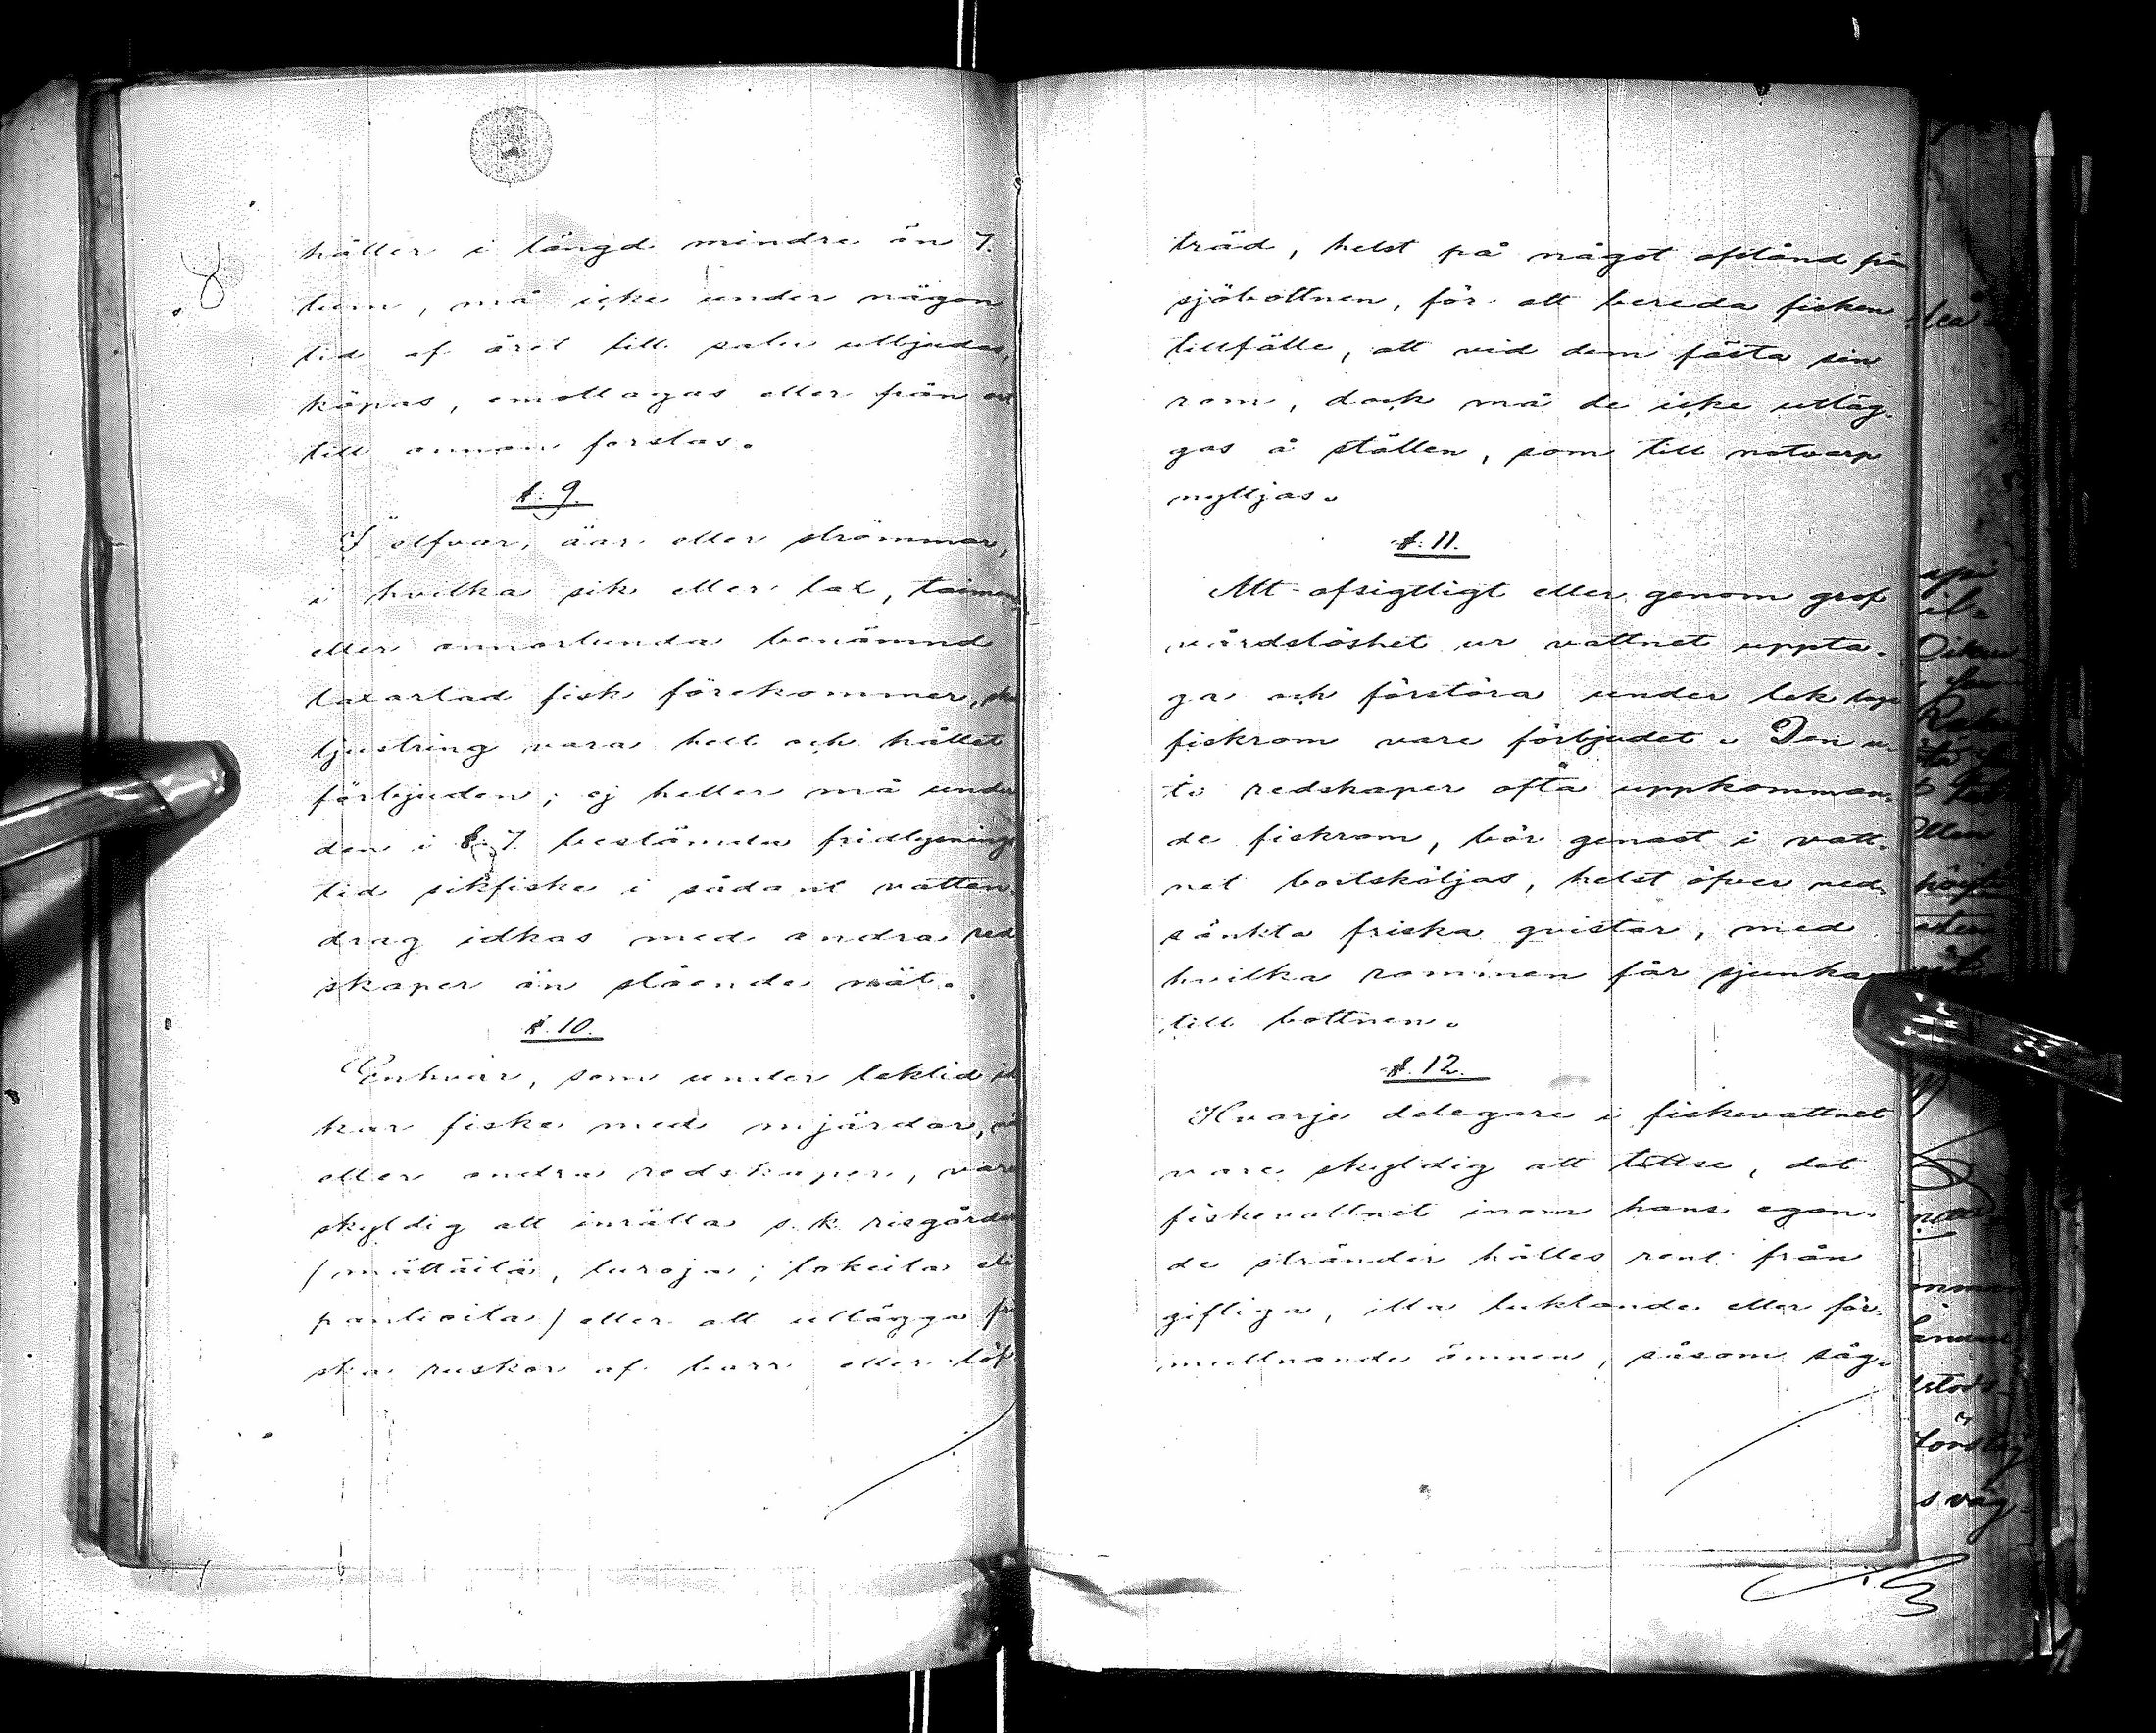 håller i längd mindre än 7.
tum, må icke under någon
tid af året till salu utbjudas,
köpas, emottagas eller från ort
till annan forslas.
§. 9.
I elfvar, åar eller strömmar,
i hvilka sik eller lax, taimen
eller annorlunda benämnd
laxartad fisk förekommer, ska
ljustring vara helt och hållet
förbjuden; ej heller må under
den i §. 7. bestämda fridlysnings
tid sikfiske i sådant vatten-
drag idkas med andra red
skaper än stående nät.
§. 10.
Enhvar, som under lektid id
kar fiske med mjärdar, nä
eller andra redskaper, vare
skyldig att inrätta s. k. risgårdar
/mättäitä, turoja, lakeita eli
pantioita/ eller att utlägga fri
ska ruskor af barr eller löf
träd, helst på något afstånd från
sjöbottnen, för att bereda fisken
tillfälle, att vid dem fästa sin
rom, dock må de icke utläg-
gas å ställen, som till notvarp
nyttjas.
§. 11.
Att afsigtligt eller genom grof
vårdslöshet ur vattnet uppta-
ga och förstöra under lek lagd
fiskrom vare förbjudet. Den u-
ti redskaper ofta uppkomman-
de fiskrom, bör genast i vatt-
net bortsköljas, helst öfver ned-
sänkta friska qvistar, med
hvilka rommen får sjunka
till bottnen.
§. 12.
Hvarje delegare i fiskevattnet
vare skyldig att tillse, det
fiskevattnet inom hans egan-
de stränder hålles rent från
giftiga, illa luktande eller för-
multnande ämnen, såsom såg-